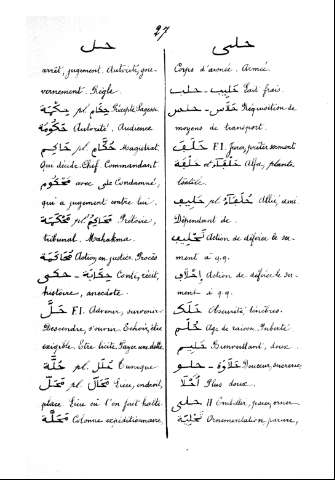 27
حل
arrêt, jugement. Autorité, gou-
vernement. Règle.
حكمة pl حكام Précepte Sagesse
حكومة Autorité, Audience
حاكم pl حكام Magistrat
Qui décide. Chef. Commandant
محكوم avec على Condamné,
qui a jugement contre lui.
محكمة pl محاكم Prétoire,
tribunal. Mahakma.
محاكمة Action en justice. Procès
حكى - حكاية Conte, récit,
histoire, anecdote.
حل F.I. Advenir, survenir
Descendre, s'ouvrir. Echoir, être
exigible. Être licite. Payer une dette.
حلة pl حلل Tunique
محل pl محال Lieu, endroit,
place. Lieu où l'on fait halte
محلة Colonne expéditionnaire,
حلى
Corps d'armée. Armée.
حليب - حلب Lait frais.
حلاس - حلس Réquisition de
moyens de transport.
حلف F.I. Jurer, prêter serment
حلفة Alfa, plante
textile.
حليف pl حلفاء Allié, ami
Dépendant de.
تحليف Action de déférer le ser-
ment à q.q.
إحلاف Action de déférer le ser-
ment à q.q.
حلك Obscurité, ténèbres.
حلم Age de raison. Puberté
حليم Bienveillant, doux.
حلو - حلاوة Douceur, sucrerie
أحلا Plus doux.
حلى II Embellir, parer, orner
تحلية Ornementation, parure,